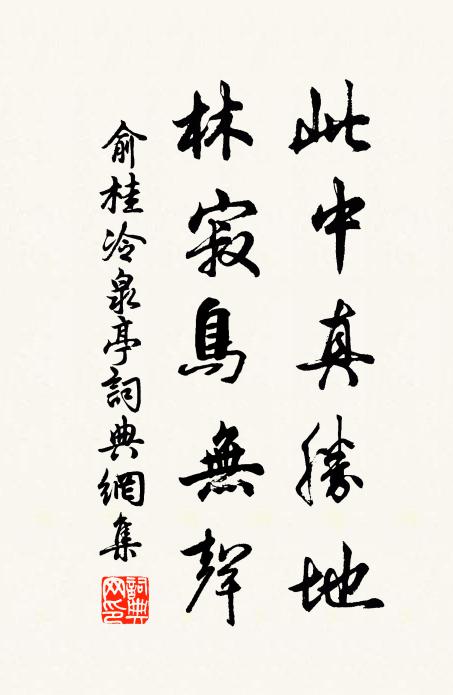 此中真勝地
林寂鳥無聲
俞桂冷泉亭詞典網集
詞典網印